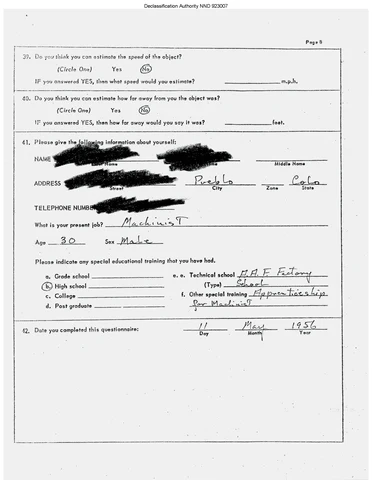 Declassification Authority NND 923007
Page 8
39. Do you think you can estimate the speed of the object?
(Circle One) Yes No
IF you answered YES, then what speed would you estimate? m.p.h.
40. Do you think you can estimate how far away from you the object was?
(Circle One) Yes No
IF you answered YES, then how far away would you say it was? feet.
41. Please give the following information about yourself:
NAME
Last Name Middle Name
ADDRESS Pueblo Colo
Street City Zone State
TELEPHONE NUMBER
What is your present job? Machinist
Age 30 Sex Male
Please indicate any special educational training that you have had.
a. Grade school
b. High school
c. College
d. Post graduate
e. e. Technical school A.A.F. Factory
(Type) School
f. Other special training Apprenticeship
for Machinist
42. Date you completed this questionnaire: 11 May 1956
Day Month Year